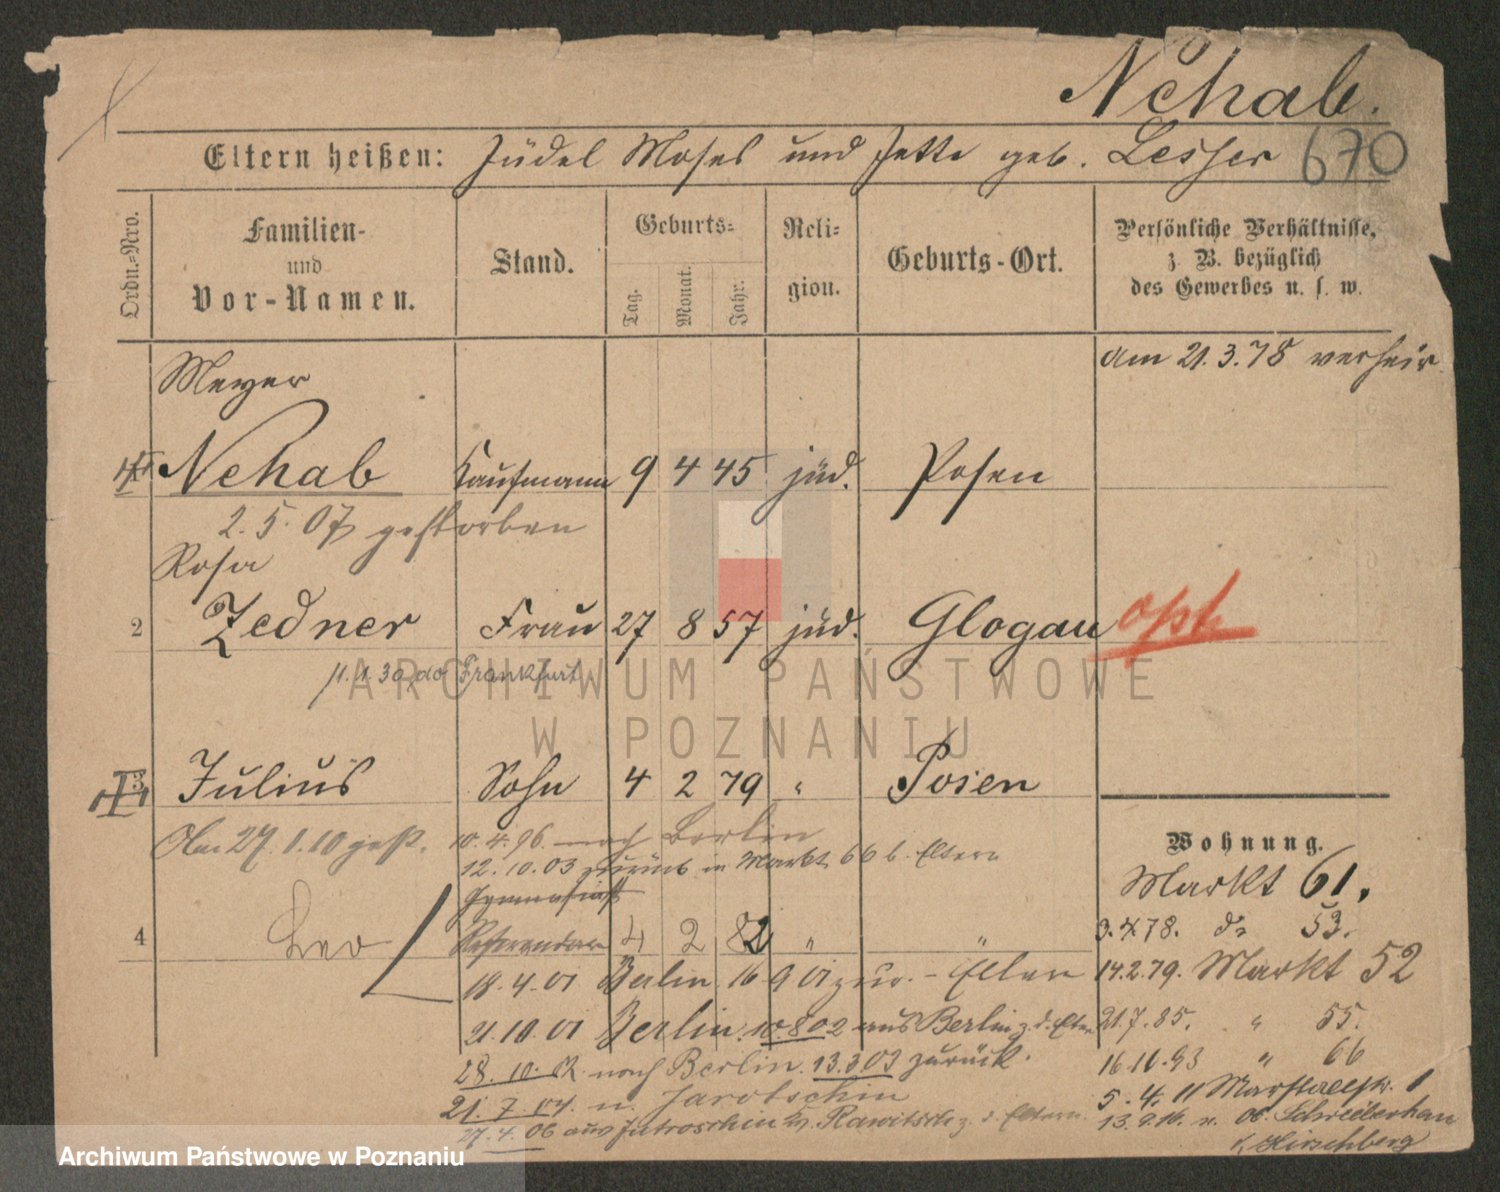 Nehab.
670
Eltern heißen: Jüdel Moses und Jette geb. Lesser
Ordn.-Nro.
Familien-
und
Vor-Namen.
Stand.
Geburts-
Tag.
Monat.
Jahr.
Reli-
gion.
Geburts-Ort.
Persönliche Verhältnisse,
z. B. bezüglich
des Gewerbes u. s. w.
Meyer
am 21.3.78 verheir.
Nehab Kaufmann 9 4 45 jüd. Posen
2. 5. 07 gestorben
Rosa
2 Zedner Frau 27 8 57 jüd. Glogau
opt.
do Frankfurt
ARCHIWUM PAŃSTWOWE
W POZNANIU
3 Julius Sohn 4 2 79 " Posen
Am 27.1.10 gest. 10. 4. 96. nach Berlin
12. 10. 03 zurück in Markt 66 b. Eltern
Wohnung.
Markt 61.
Gymnasiast
4 Leo Referendar 4 2 82 " "
3. 78. do 53.
18. 4. 01 Berlin 16 9 01 zur. - Eltern
14.2.79. Markt 52
21. 10. 01 Berlin. 10.8.02 aus Berlin z. d. Eltern
21.7.85. " 55.
28. 10. 02. nach Berlin. 13.3.03 zurück.
16.10.93 " 66
21. 7. 04. n. Jarotschin
5. 4. 11 Marstallstr. 1
27. 4. 06 aus Jutroschin Kr. Rawitsch z. d. Eltern.
13.9.16. n. Ob. Schreiberhau
Kr. Hirschberg
Archiwum Państwowe w Poznaniu